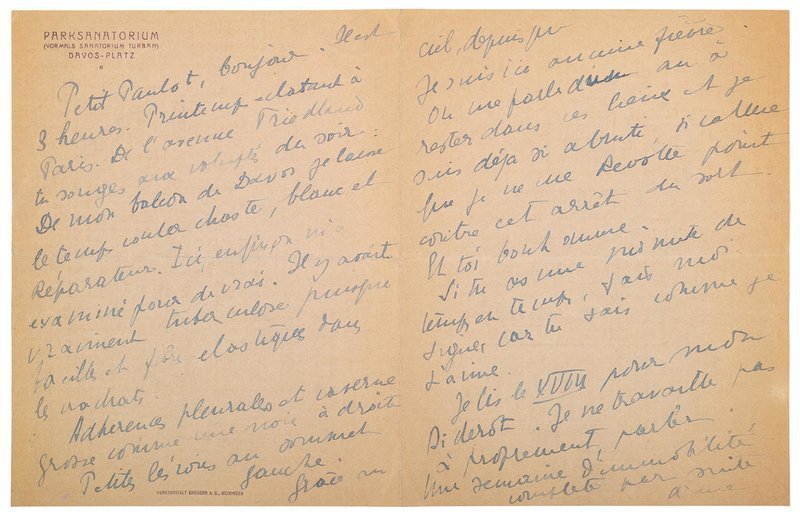 PARKSANATORIUM
(VORMALS SANATORIUM TURBAN)
DAVOS-PLATZ
Petit Paulot, bonjour. Il est
3 heures. Printemps éclatant à
Paris. De l'avenue Friedland
tu songes aux voluptés du soir.
De mon balcon de Davos je laisse
le temps couler chaste, blanc et
Réparateur. Ici enfin on m'a
examiné pour de vrai. Il y avait
vraiment tuberculose puisque
bacilles et fibres élastiques dans
les crachats.
Adhérences pleurales et caverne
grosse comme une noix à droite
Petites lésions au sommet
gauche. Grâce au
KUNSTANSTALT BRÜGGER A.G., MEIRINGEN
ciel, depuis que
Je suis ici aucune fièvre.
On me parle d'un an à
rester dans ces lieux et je
suis déjà si abruti si calme
que je ne me Révolte point
contre cet arrêt du sort.
Et toi bonhomme.
Si tu as une minute de
temps en temps, fais moi
signe, car tu sais comme je
t'aime.
Je lis le XVIII pour mon
Diderot. Je ne travaille pas
à proprement parler.
Une semaine d'immobilité
complète par suite
d'une